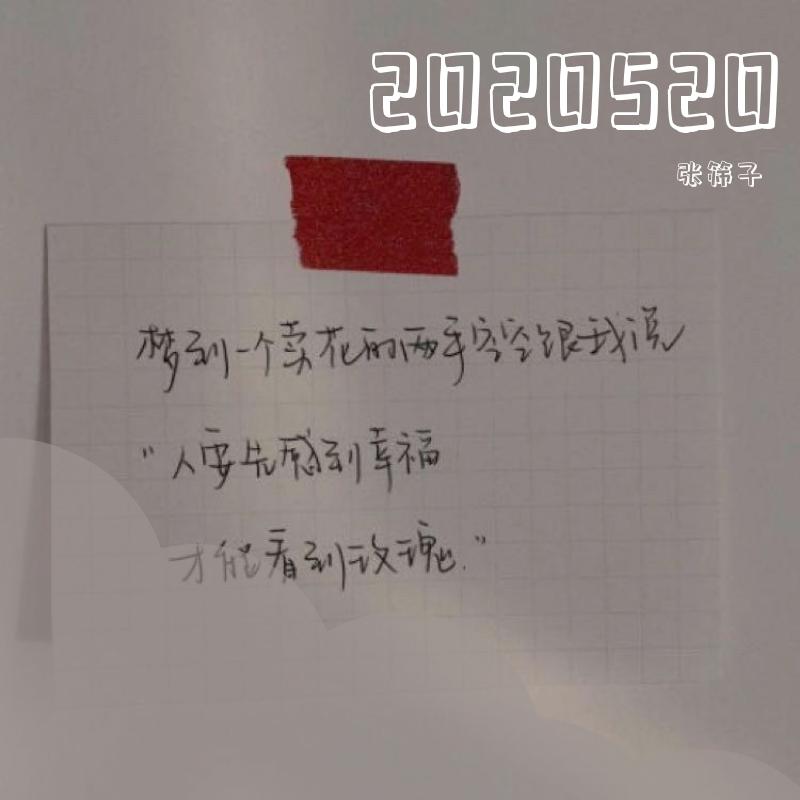 2020520
张筛子
梦到一个卖花的两手空空跟我说
“人要先感到幸福
才能看到玫瑰.”